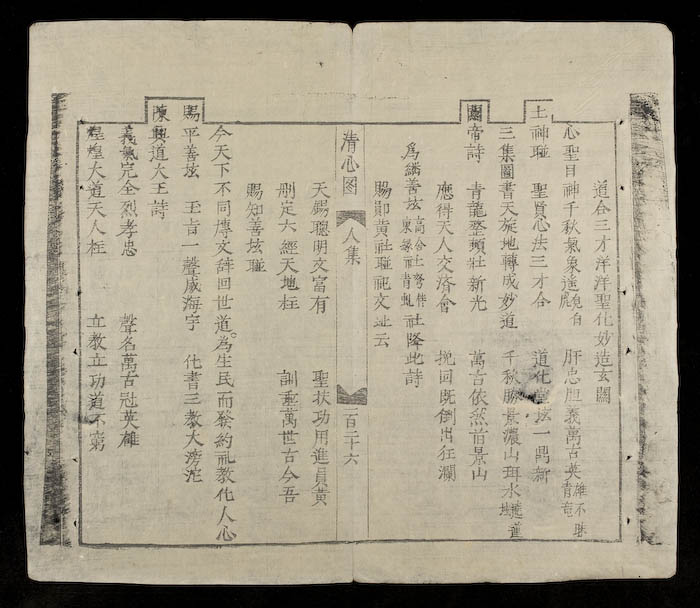 道合三才洋洋聖化妙造玄關
心聖目神千秋氣象遙 肝忠胆義萬古英雄不昧青竜
上神聯 聖賢心法三才合 道化善坛一昂新
三集圖書天旋地轉成妙道 千秋勝景濃山珥水
關帝詩 青龍壯新光 萬古依然首景山
應得天人交済會 挽回既倒出狂瀾
為善坛 社降此詩
賜郞黄社聯祀文址云
清心图 人集 一百二十六
天錫聰明文富有 聖扶功用進員黄
刪定六經天地柱 訓垂萬世古今吾
賜知善坛聯
今天下不同傳文辞回世道。為生民而發約礼教化人心
賜平善坛 至言一聲威海宇 化書三教大滂沱
陳興道大王詩
義氣完全烈孝忠 聲名萬古冠英雄
煌煌大道天人柱 立教立功道不窮